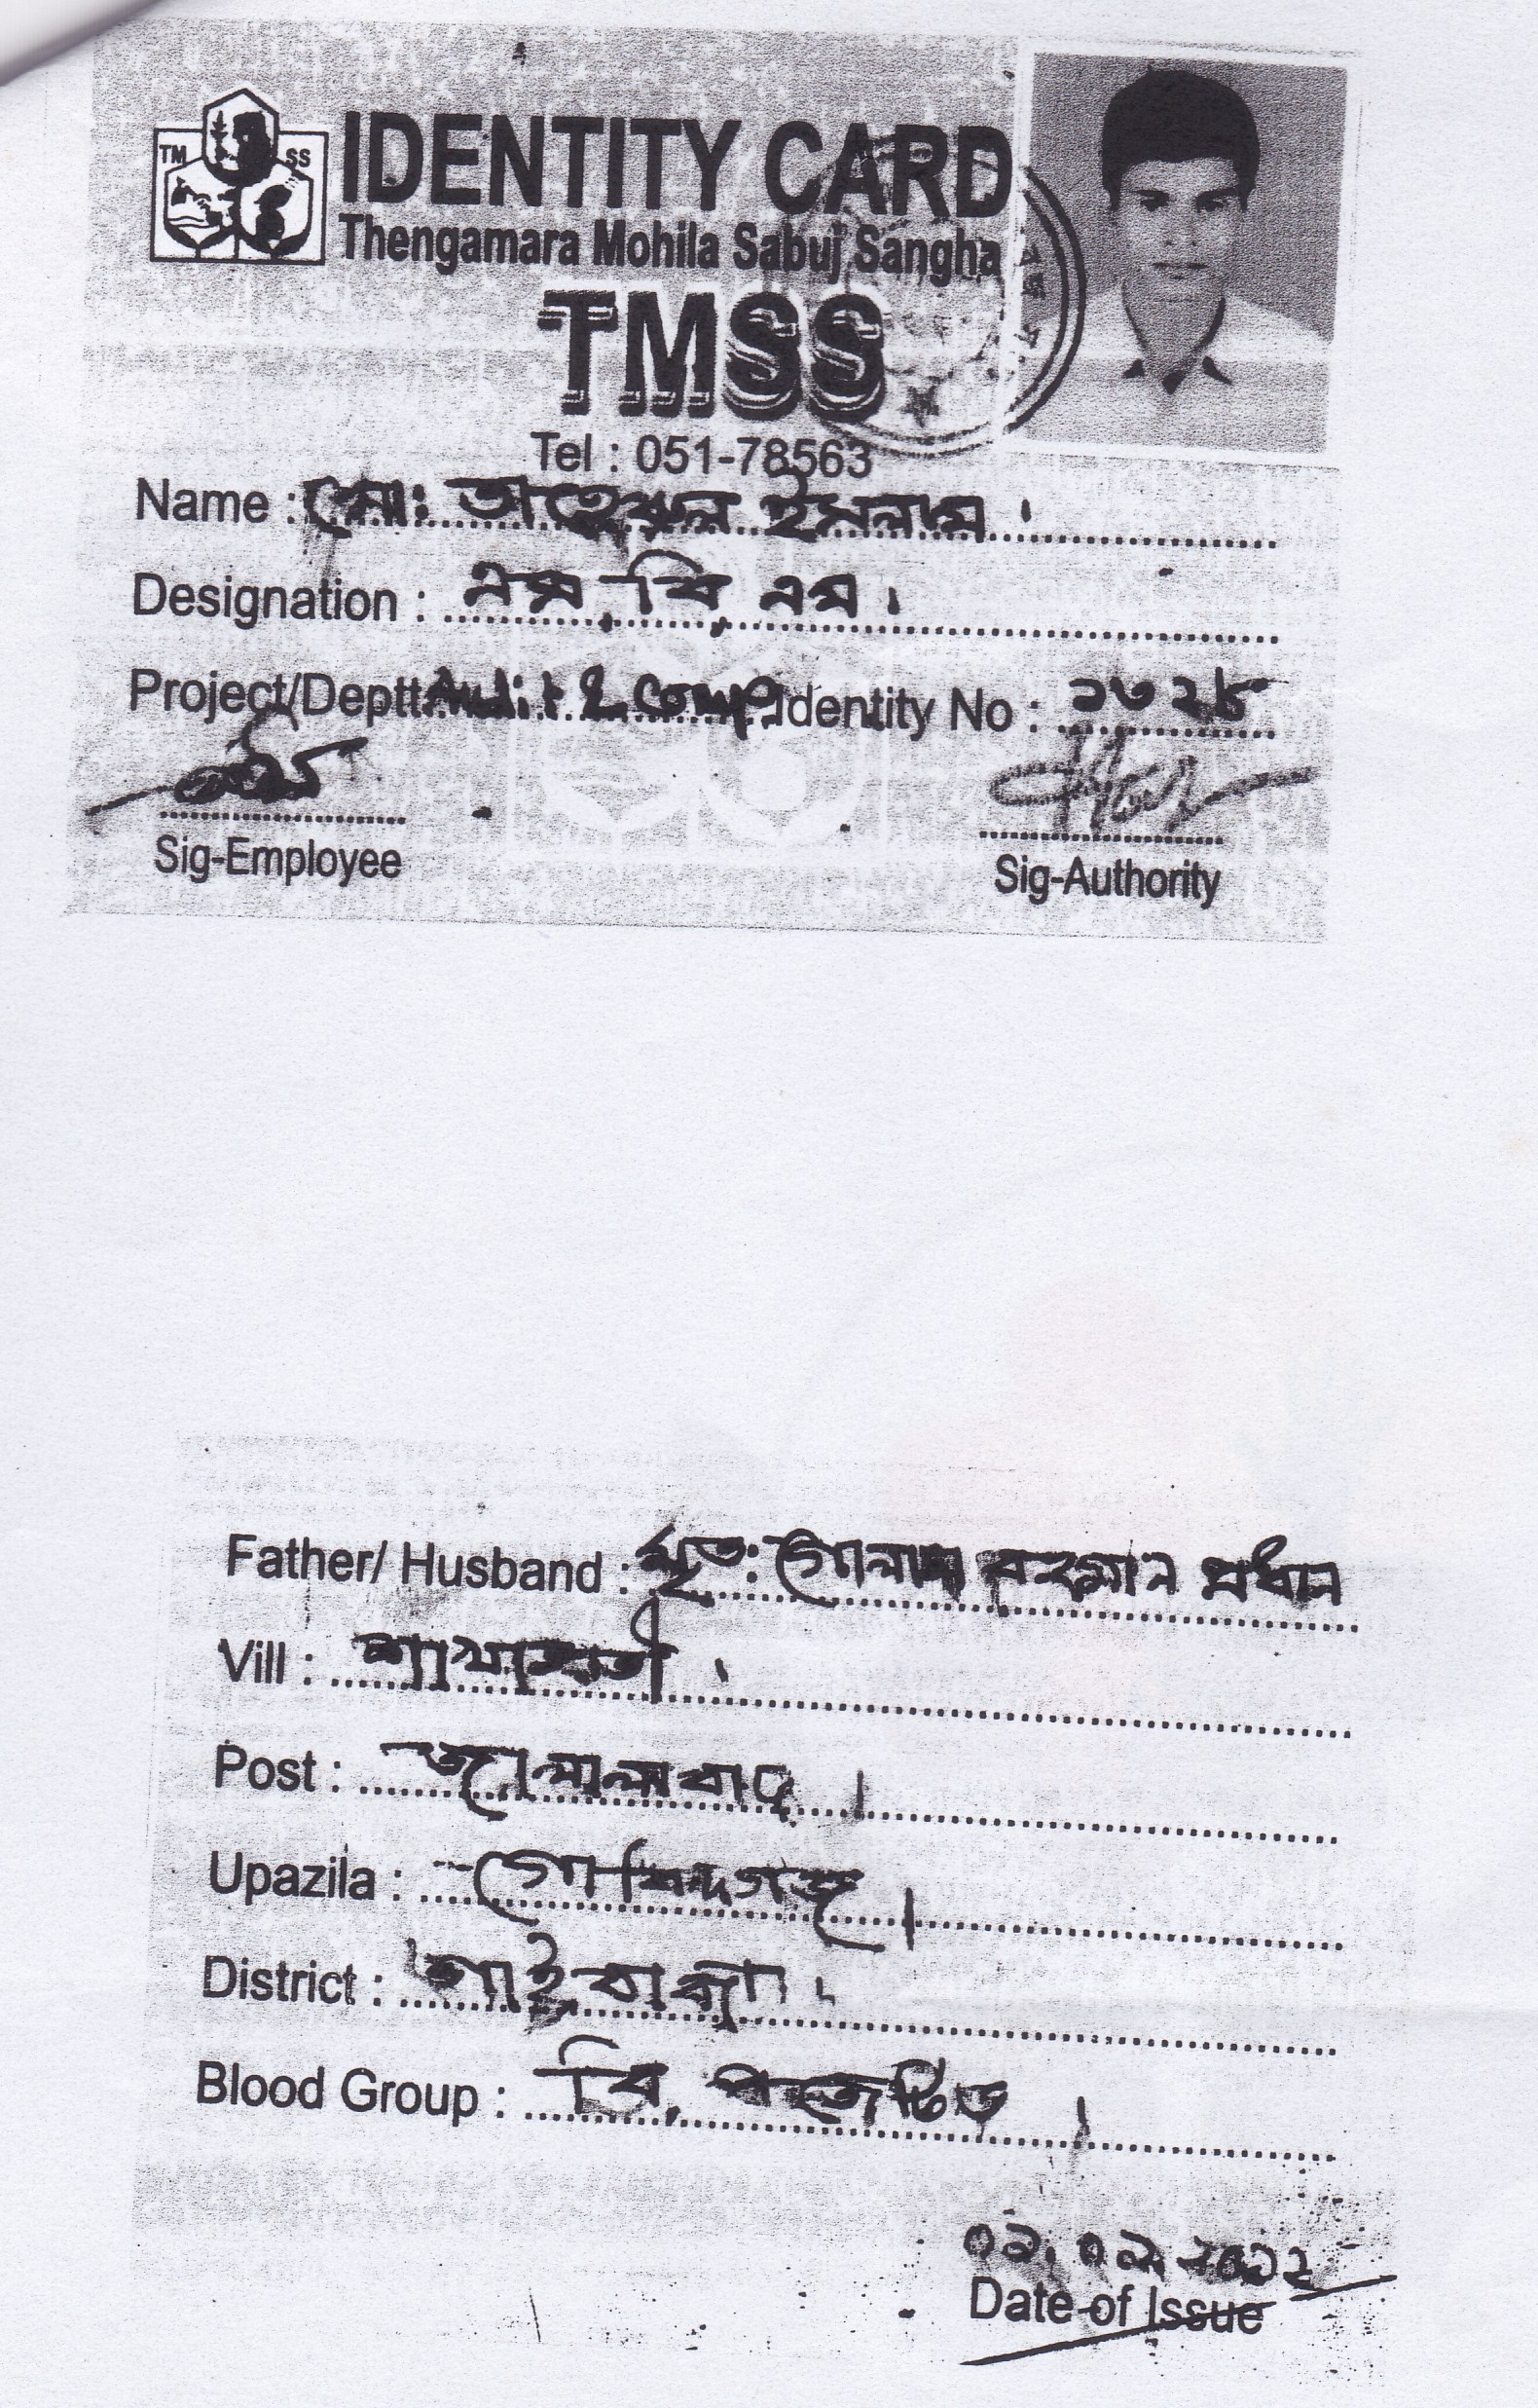 TM SS
IDENTITY CARD
Thengamara Mohila Sabuj Sangha
TMSS
Tel : 051-78563
Name : মো: তাহেরুল ইসলাম।
Designation : এস, বি, এম।
Project/Deptt: Audit & Comp. Identity No : ১৩২৮
Sig-Employee
Sig-Authority
Father/ Husband : মৃত: গোলাম রহমান প্রধান
Vill :
Post :
Upazila : গোবিন্দগঞ্জ।
District : গাইবান্ধা।
Blood Group : বি, পজেটিভ।
Date of Issue